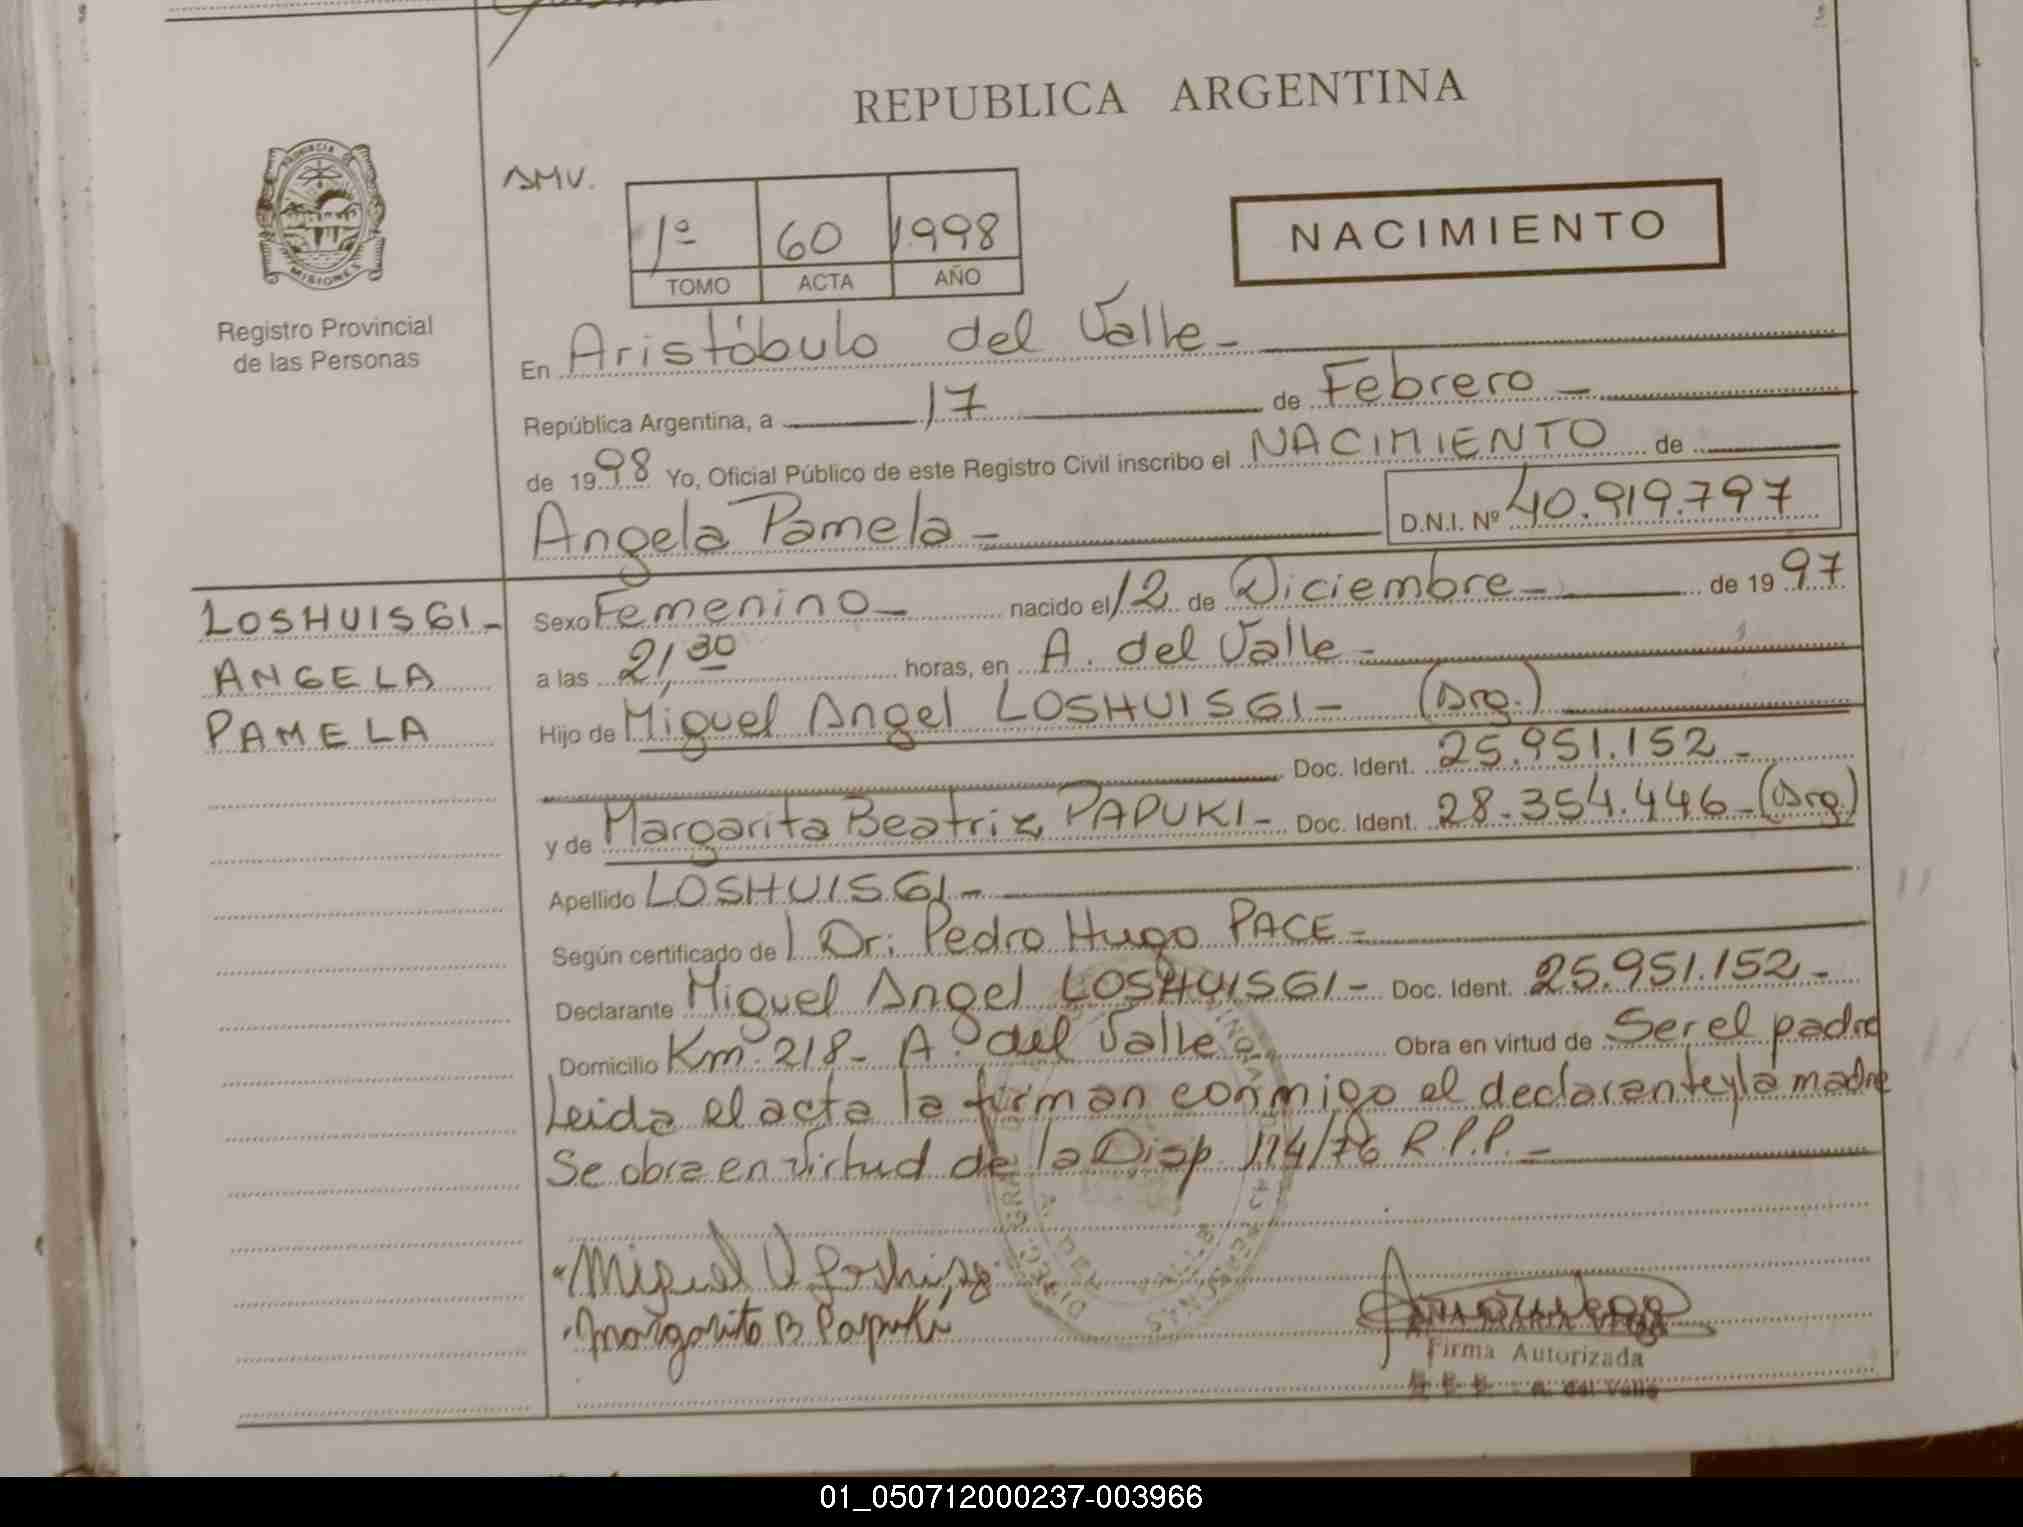 REPUBLICA ARGENTINA
PROVINCIA DE
MISIONES
Registro Provincial
de las Personas
AMV.
1º 60 1998
TOMO ACTA AÑO
NACIMIENTO
En Aristóbulo del Valle -
República Argentina, a 17 de Febrero -
de 1998 Yo, Oficial Público de este Registro Civil inscribo el NACIMIENTO de
Angela Pamela - D.N.I. Nº 40.919.797
LOSHUISGI -
ANGELA
PAMELA
Sexo Femenino - nacido el 12 de Diciembre - de 1997
a las 21,30 horas, en A. del Valle -
Hijo de Miguel Angel LOSHUISGI - (Arg.)
Doc. Ident. 25.951.152 -
y de Margarita Beatriz PAPUKI - Doc. Ident. 28.354.446 - (Arg.)
Apellido LOSHUISGI -
Según certificado de l Dr: Pedro Hugo PACE -
Declarante Miguel Angel LOSHUISGI - Doc. Ident. 25.951.152 -
Domicilio Km. 218 - A. del Valle Obra en virtud de Ser el padre
Leida el acta la firman conmigo el declarante y la madre
Se obra en virtud de la Disp. 114/76 R.P.P. -
Miguel A
Margarita B Papuki
ANA MARIA VEGA
Firma Autorizada
A. del Valle
01_050712000237-003966